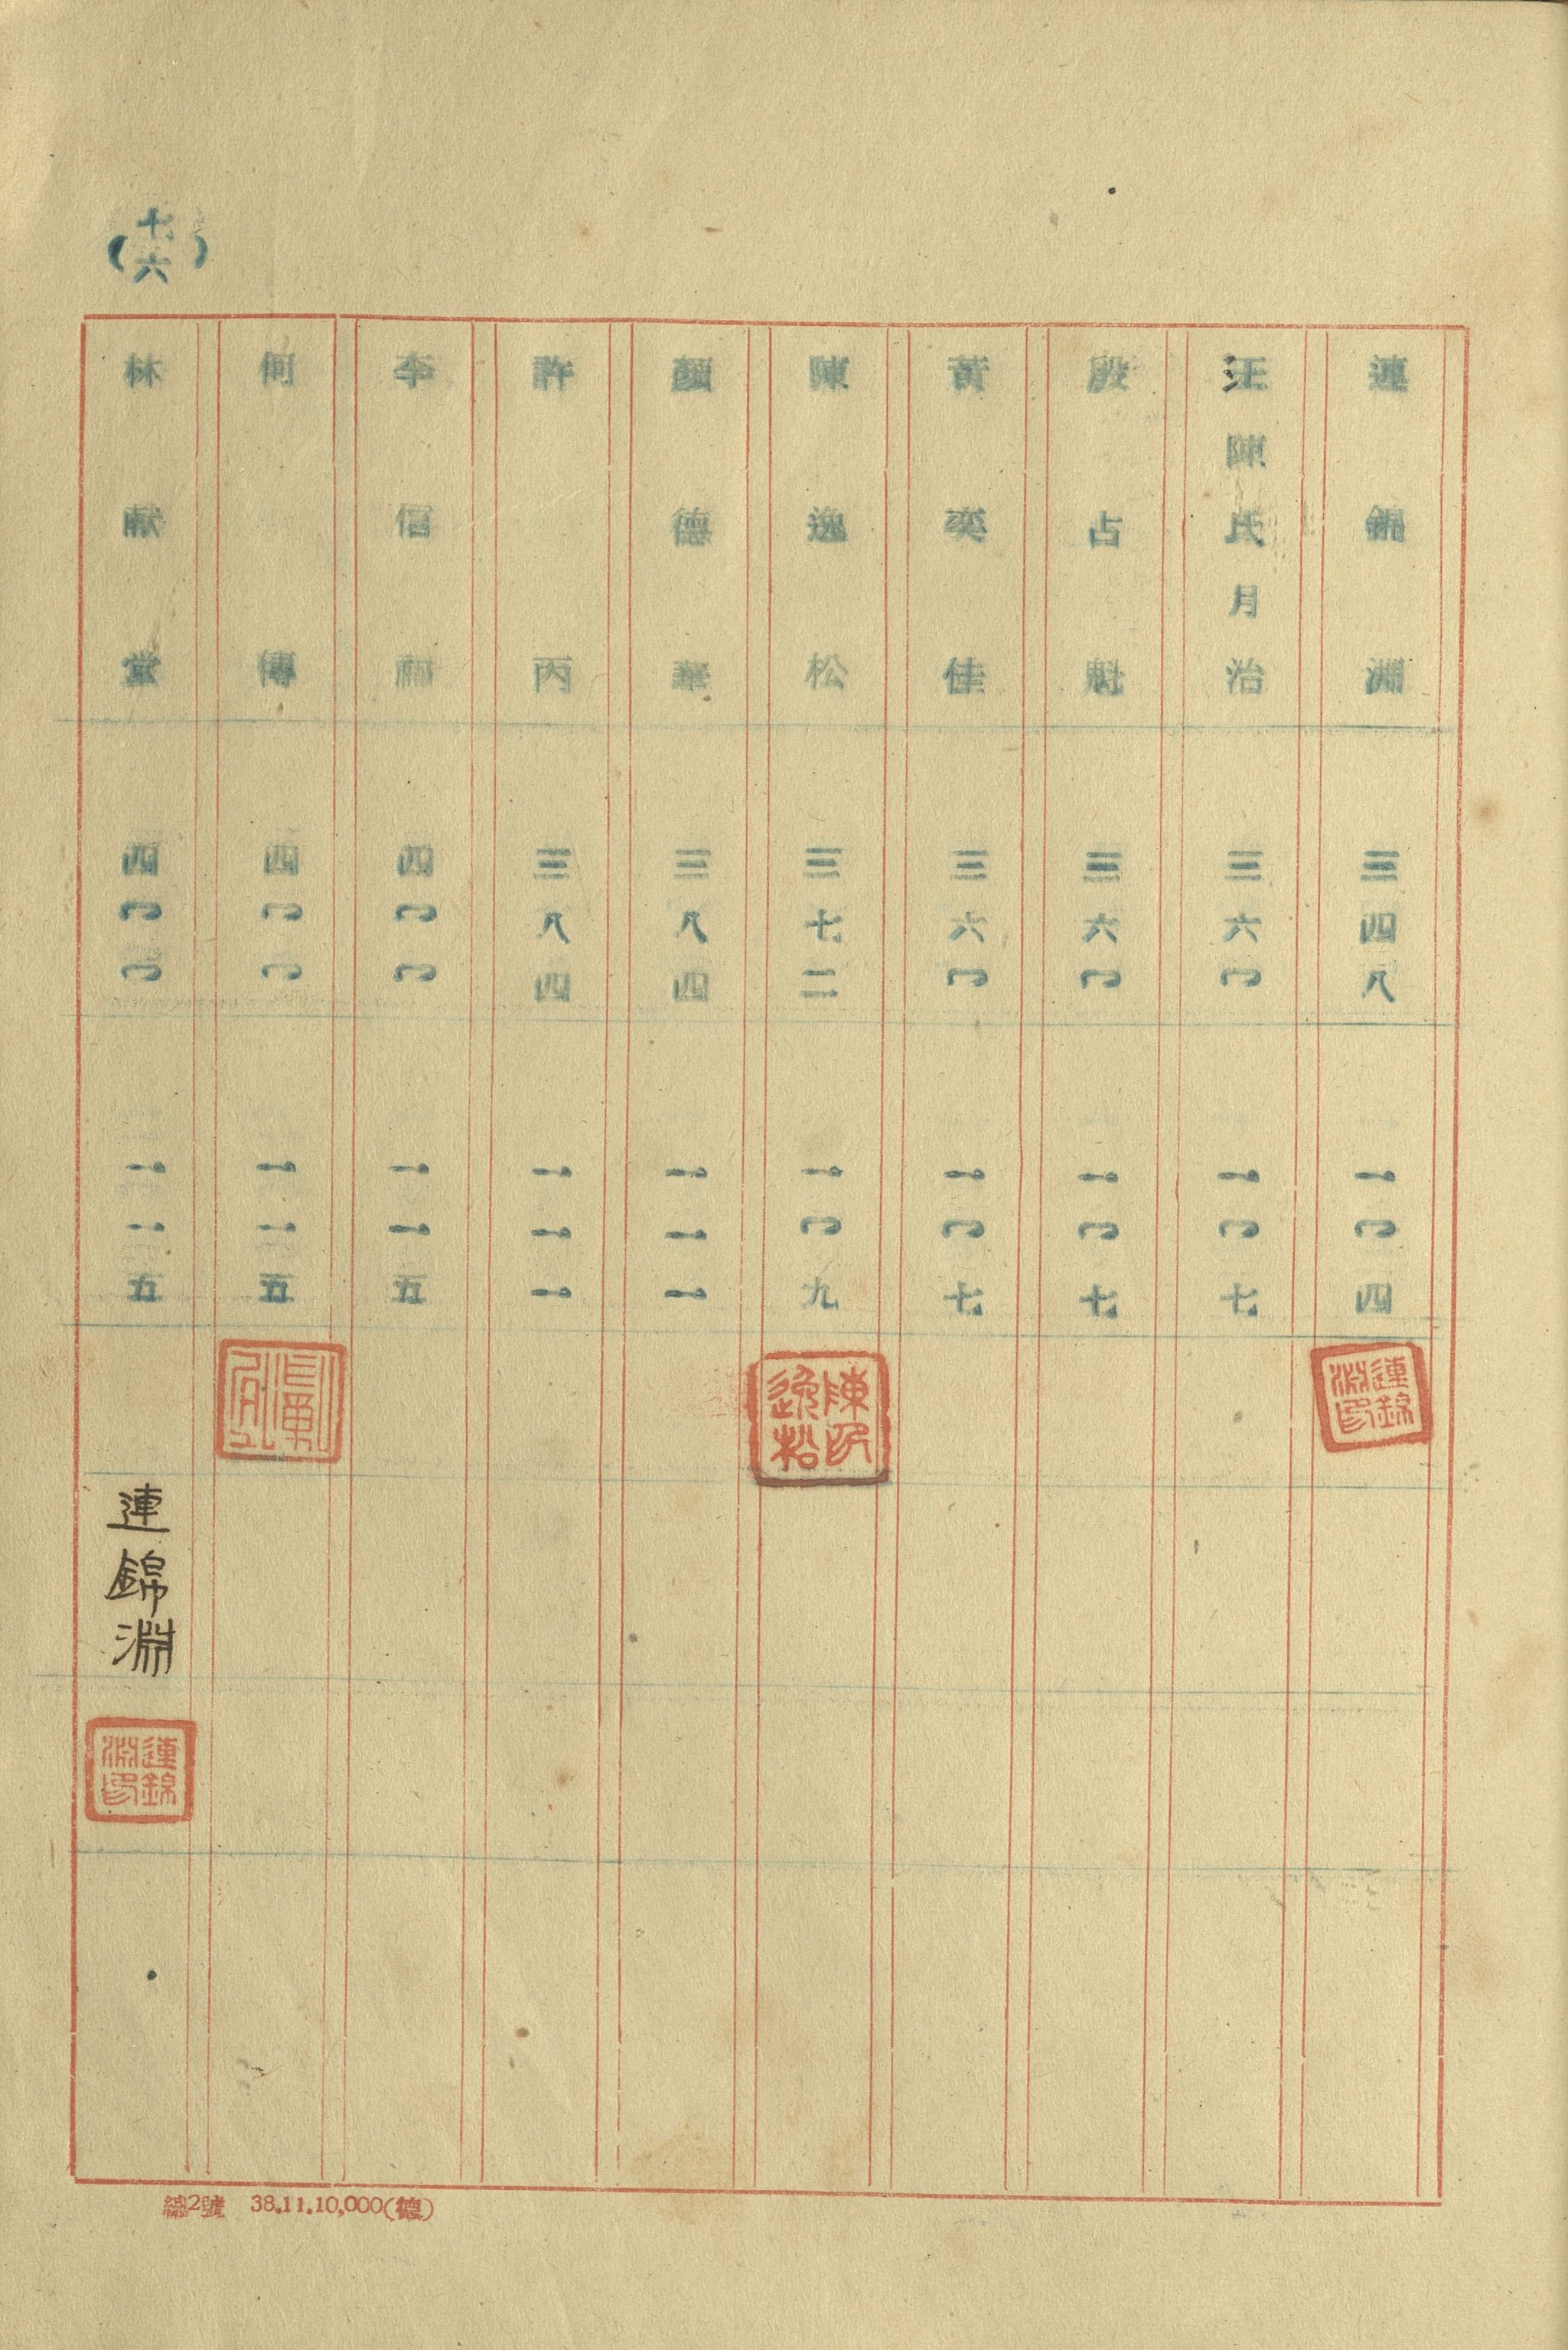 連錦淵 三四八 一〇四 連錦淵印
汪陳氏月治 三六〇 一〇七
殷占魁 三六〇 一〇七
黃奕佳 三六〇 一〇七
陳逸松 三七二 一〇九 陳逸松印
顏德 三八四 一一一
許丙 三八四 一一一
李信 四〇〇 一一五
何傳 四〇〇 一一五
林献堂 四〇〇 一一五 連錦淵 連錦淵印
(七六)
總2號 38.11.10,000(德)